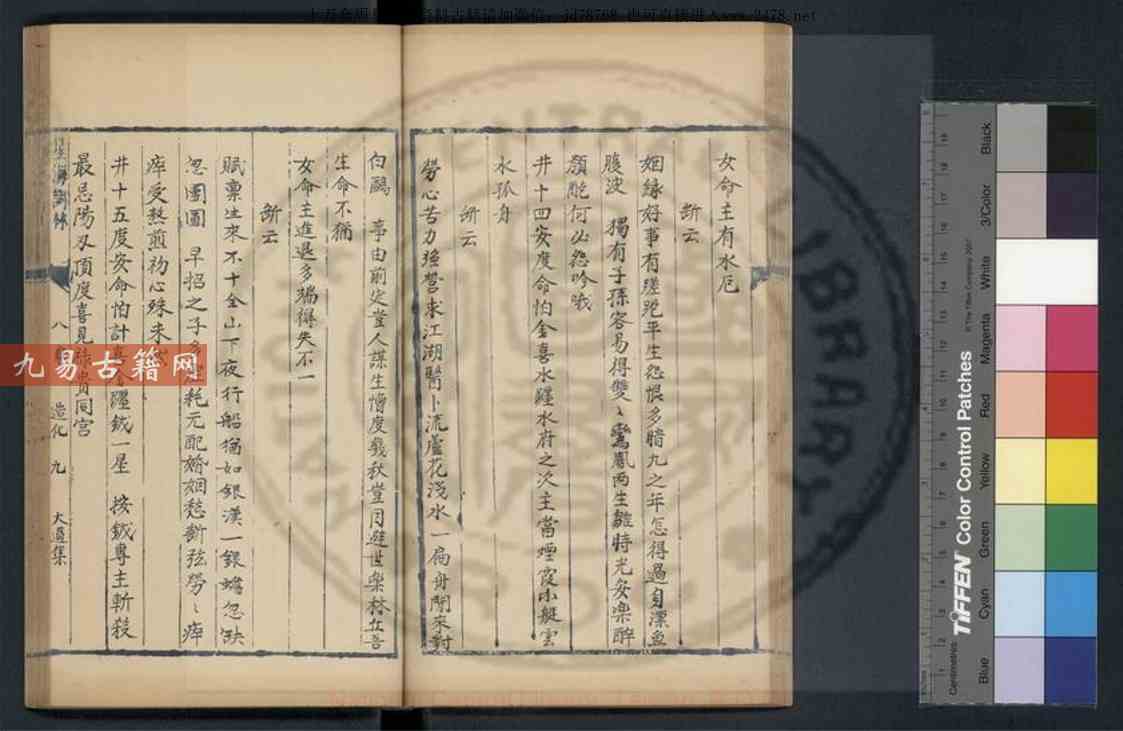 女命主有水厄
斷云
姻緣好事有蹉跎平生怨恨多暗九之年怎得過自漂魚
腹波 獨有子孫容易得雙〻鸞鳳两生雛時光安樂醉
顏酡何必怨吟哦
井十四安度命怕金喜水纏水府之次主當煙霞小艇雲
水孤身
斷云
勞心苦力強營求江湖醫卜流蘆花淺水一扁舟閒來對
白鷗 事由前定堂人謀生憎度幾秋豈同避世樂林丘吾
生命不猶
女命主進退多端得失不一
斷云
賦稟生來不十全山下夜行船猶如銀漢一銀蟾忽缺
忽團圓 早招之子多 耗元配婚姻愁斷弦勞〻瘁
瘁受熬煎初心殊未
井十五度安命怕計 躔鉞一星 按鉞專主斬殺
最忌陽刃頂度喜見 同宮
造化 九 大通集
九易古籍网
www.3478.net
TIFFEN Color Control Patches
© The Tiffen Company 2007
Centimetres
Blue
Cyan
Green
Yellow
Red
Magenta
White
3/Color
Black